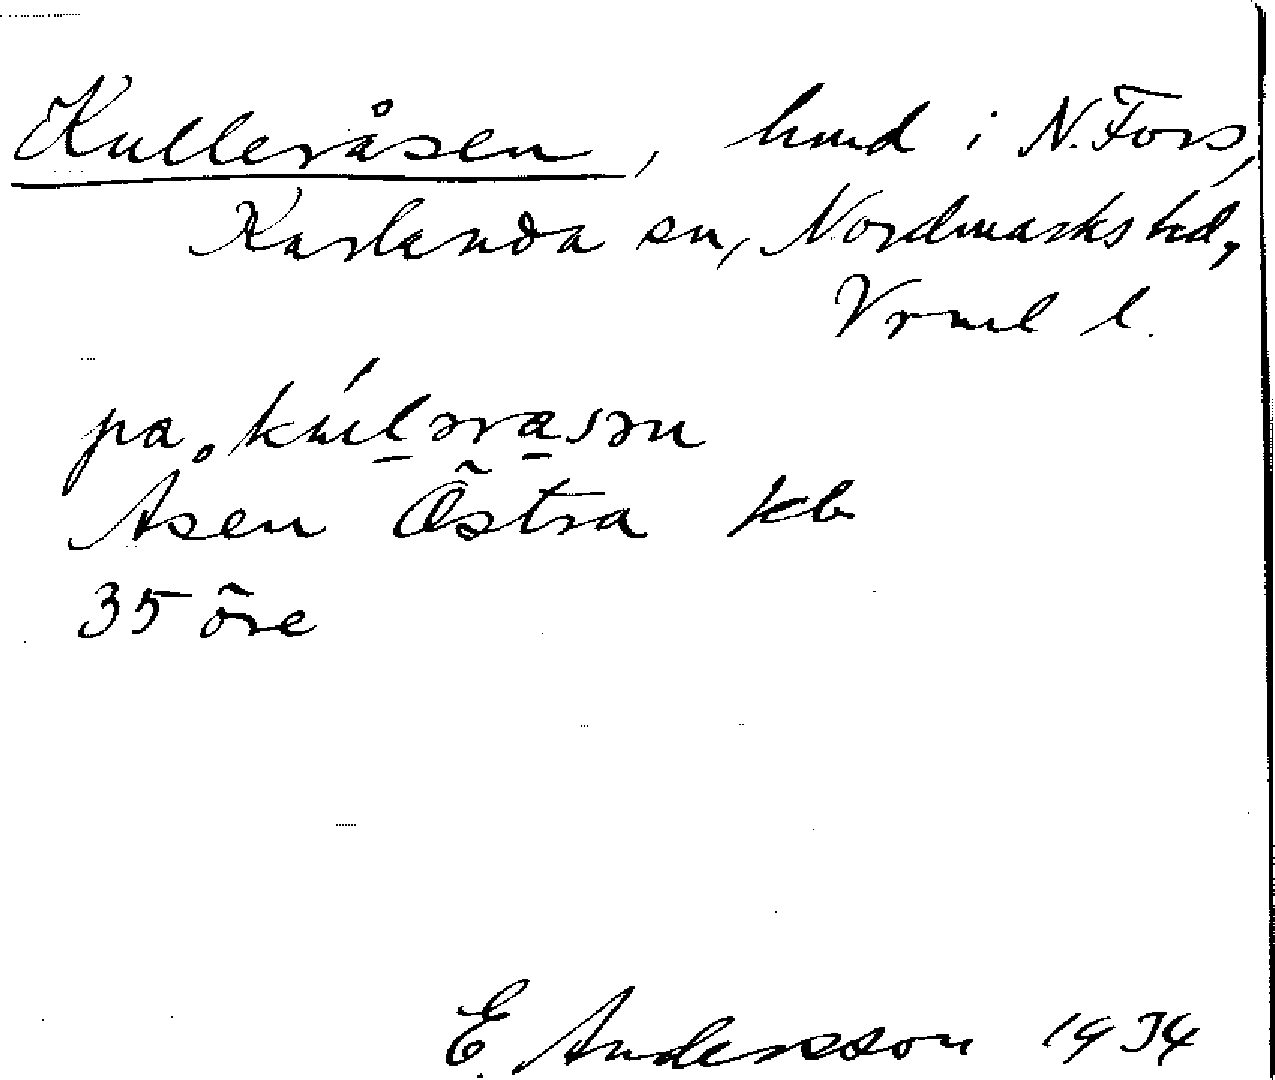 Kulleråsen, hmd i N. Fors,
Karlanda sn, Nordmarks hd,
Vrml l.
pa
Åsen Östra kb
35 öre
E. Andersson 1934